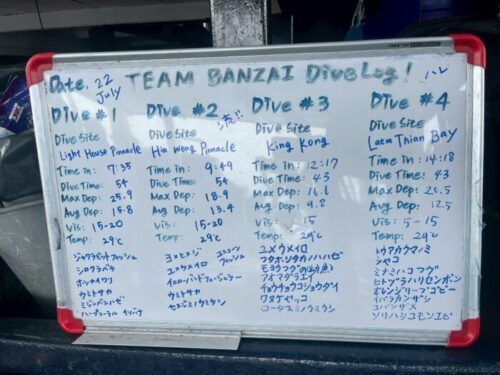 Date. 22 July
TEAM BANZAI Dive Log!
ハレ
Dive #1
Dive Site
Light House Pinnacle
Time in: 7:35
Dive Time: 54
Max Dep: 25.9
Avg Dep: 15.8
Vis: 15-20
Temp: 29℃
シロクラベラ
ホシカイワリ
ウミトサカ
Dive #2
Dive Site
Hin Wong Pinnacle
Time in: 9:49
Dive Time: 54
Max Dep: 18.9
Avg Dep: 13.4
Vis: 15-20
Temp: 29℃
ヨメヒメジ
ユメウメイロ
イエローバンドフュージラー
ウミトサカ
セスジミノウミウシ
Dive #3
Dive Site
King Kong
Time in: 12:17
Dive Time: 43
Max Dep: 16.6
Avg Dep: 9.8
Vis: 15
Temp: 29℃
ユメウメイロ
フタホシタカノハハゼ
アオマダラエイ
チョウチョウコショウダイ
ワヌケヤッコ
ロータスミノウミウシ
Dive #4
Dive Site
Laem Thian Bay
Time in: 14:18
Dive Time: 43
Avg Dep: 12.5
Vis: 5-15
Temp: 29℃
トウアカクマノミ
シャコ
ミナミハコフグ
ヒトヅラハリセンボン
オレンジリーフゴビー
イバラカンザシ
コバンザメ
ソリハシコモンエビ